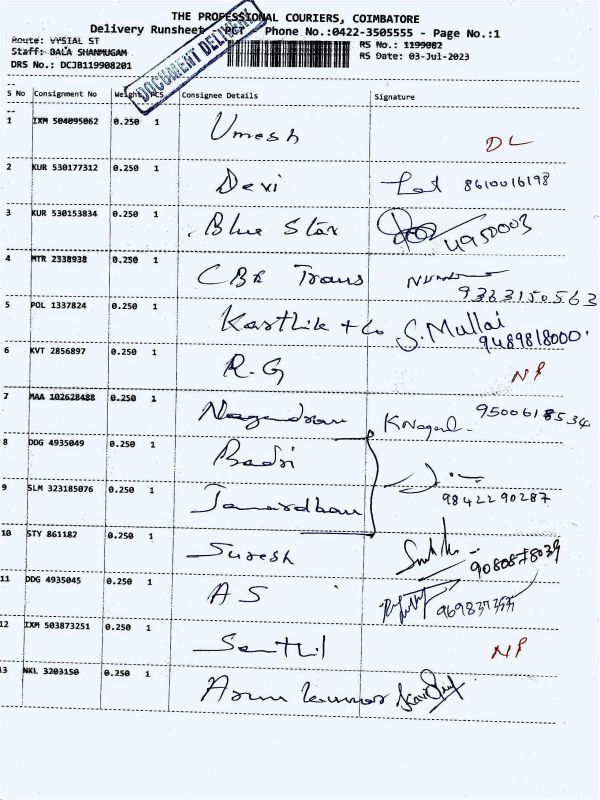 THE PROFESSIONAL COURIERS, COIMBATORE
Delivery Runsheet PCT Phone No.:0422-3505555 - Page No.:1
Route: VYSIAL ST
Staff: BALA SHANMUGAM
DRS No.: DCJB119908201
RS No.: 1199082
RS Date: 03-Jul-2023
DOCUMENT DELIVERY
S No Consignment No Weight PCS Consignee Details Signature
1 IXM 504095062 0.250 1 Umesh DL
2 KUR 530177312 0.250 1 Devi 8610016198
3 KUR 530153834 0.250 1 Blue Star 4950003
4 MTR 2338938 0.250 1 CBE Trans 9363150563
5 POL 1337824 0.250 1 Karthik + Co S. Mullai
9489818000
6 KVT 2856897 0.250 1 R.G NP
7 MAA 102628488 0.250 1 Nagendran K Nagend 9500618534
8 DDG 4935049 0.250 1 Badri
9 SLM 323185076 0.250 1 Janardhan 9842290287
10 STY 861182 0.250 1 Suresh 9080878039
11 DDG 4935045 0.250 1 A S
12 IXM 503873251 0.250 1 Senthil NP
13 NKL 3203150 0.250 1 Arun kumar